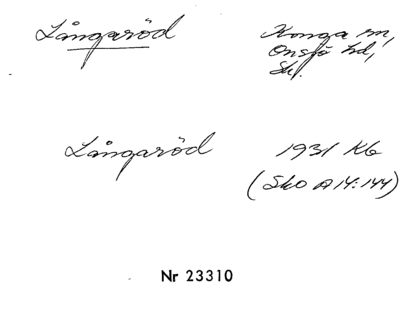 Långaröd
Konga sn,
Onsjö hd,
Sk.
Långaröd
1931 Kb
(Sko A14:144)
Nr 23310